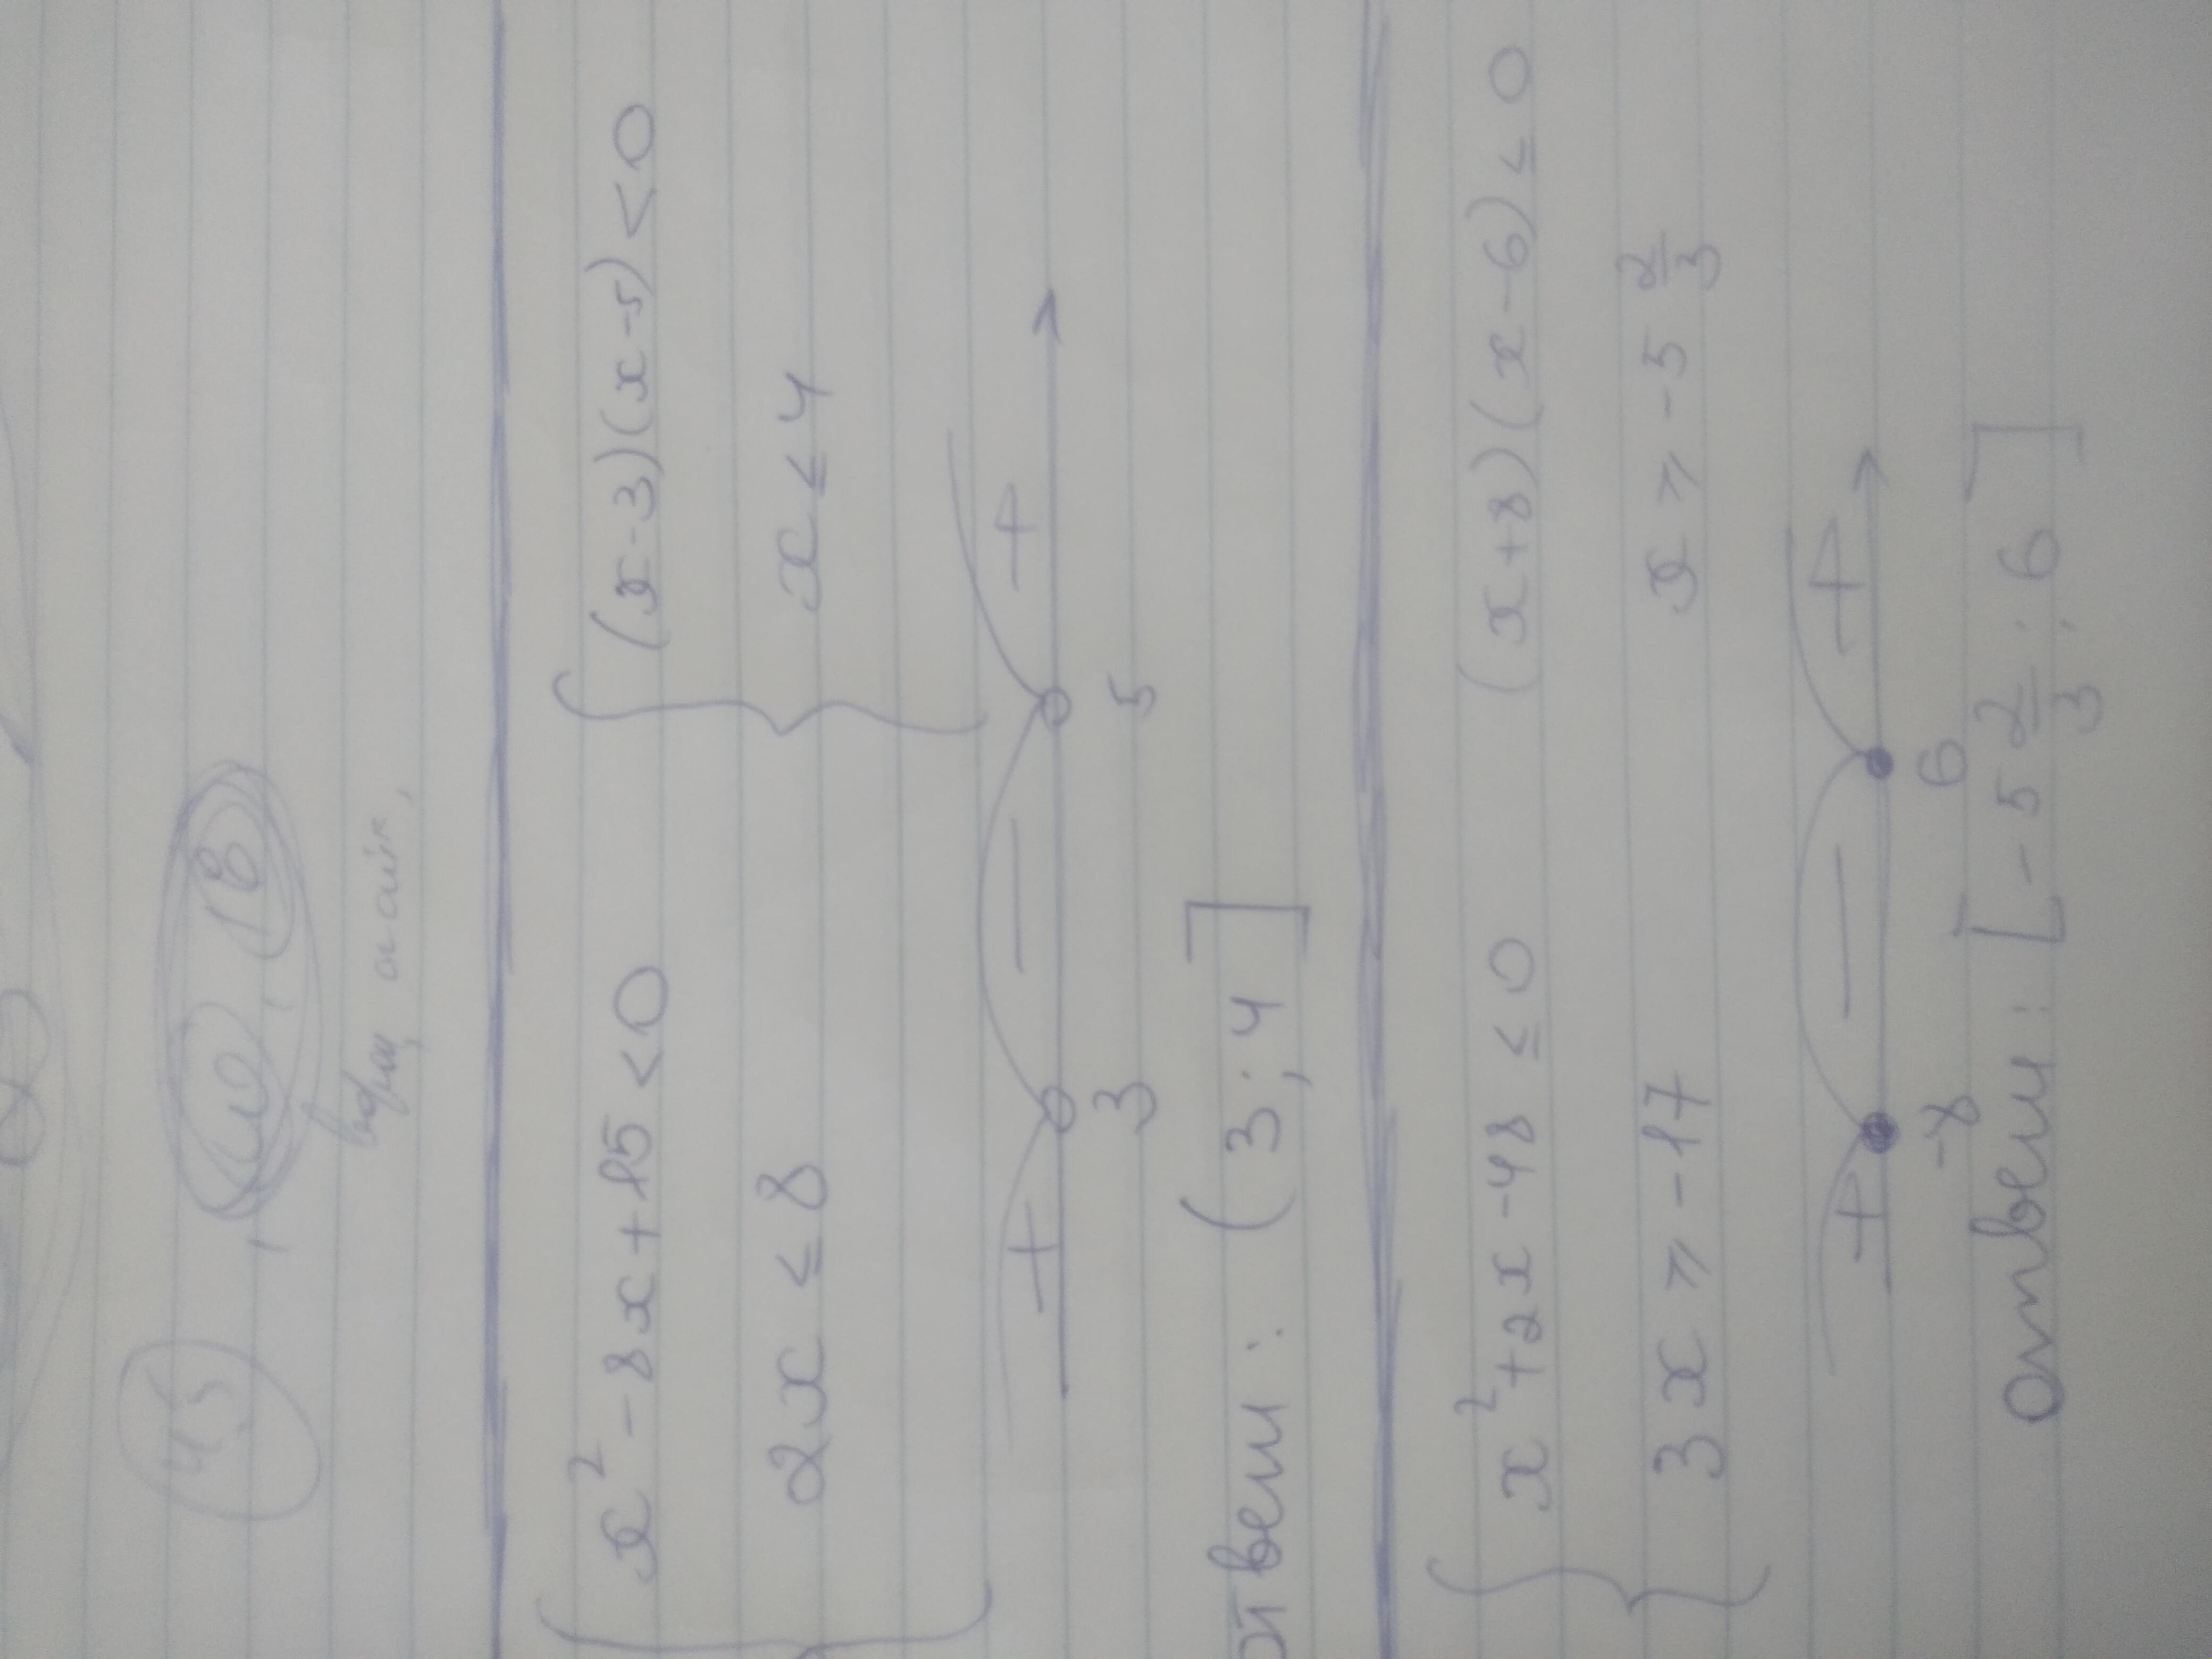 x² - 8x + 15 < 0 (x-3)(x-5) < 0
2x ≤ 8 x ≤ 4
+ — +
3 5
Ответ: (3; 4]
x² + 2x - 48 ≤ 0 (x+8)(x-6) ≤ 0
3x ⩾ -17 x ⩾ -5 2/3
+ — +
-8 6
Ответ: [-5 2/3; 6]